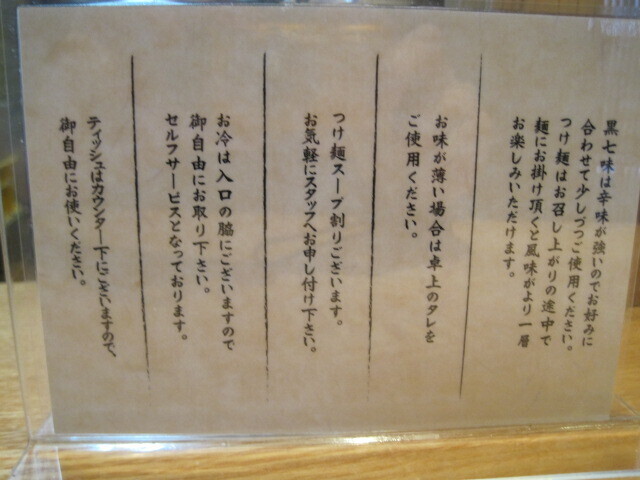 黒七味は辛味が強いのでお好みに
合わせて少しづつご使用ください。
つけ麺はお召し上がりの途中で
麺にお掛け頂くと風味がより一層
お楽しみいただけます。
お味が薄い場合は卓上のタレを
ご使用ください。
つけ麺スープ割りございます。
お気軽にスタッフへお申し付け下さい。
お冷は入口の脇にございますので
御自由にお取り下さい。
セルフサービスとなっております。
ティッシュはカウンター下にございますので、
御自由にお使いください。